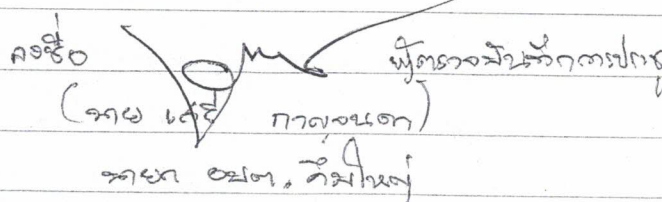 ลงชื่อ ผู้ตรวจบันทึกการประชุ
(นาย เสรี กาญจนดา)
นายก อบต. คึมใหญ่